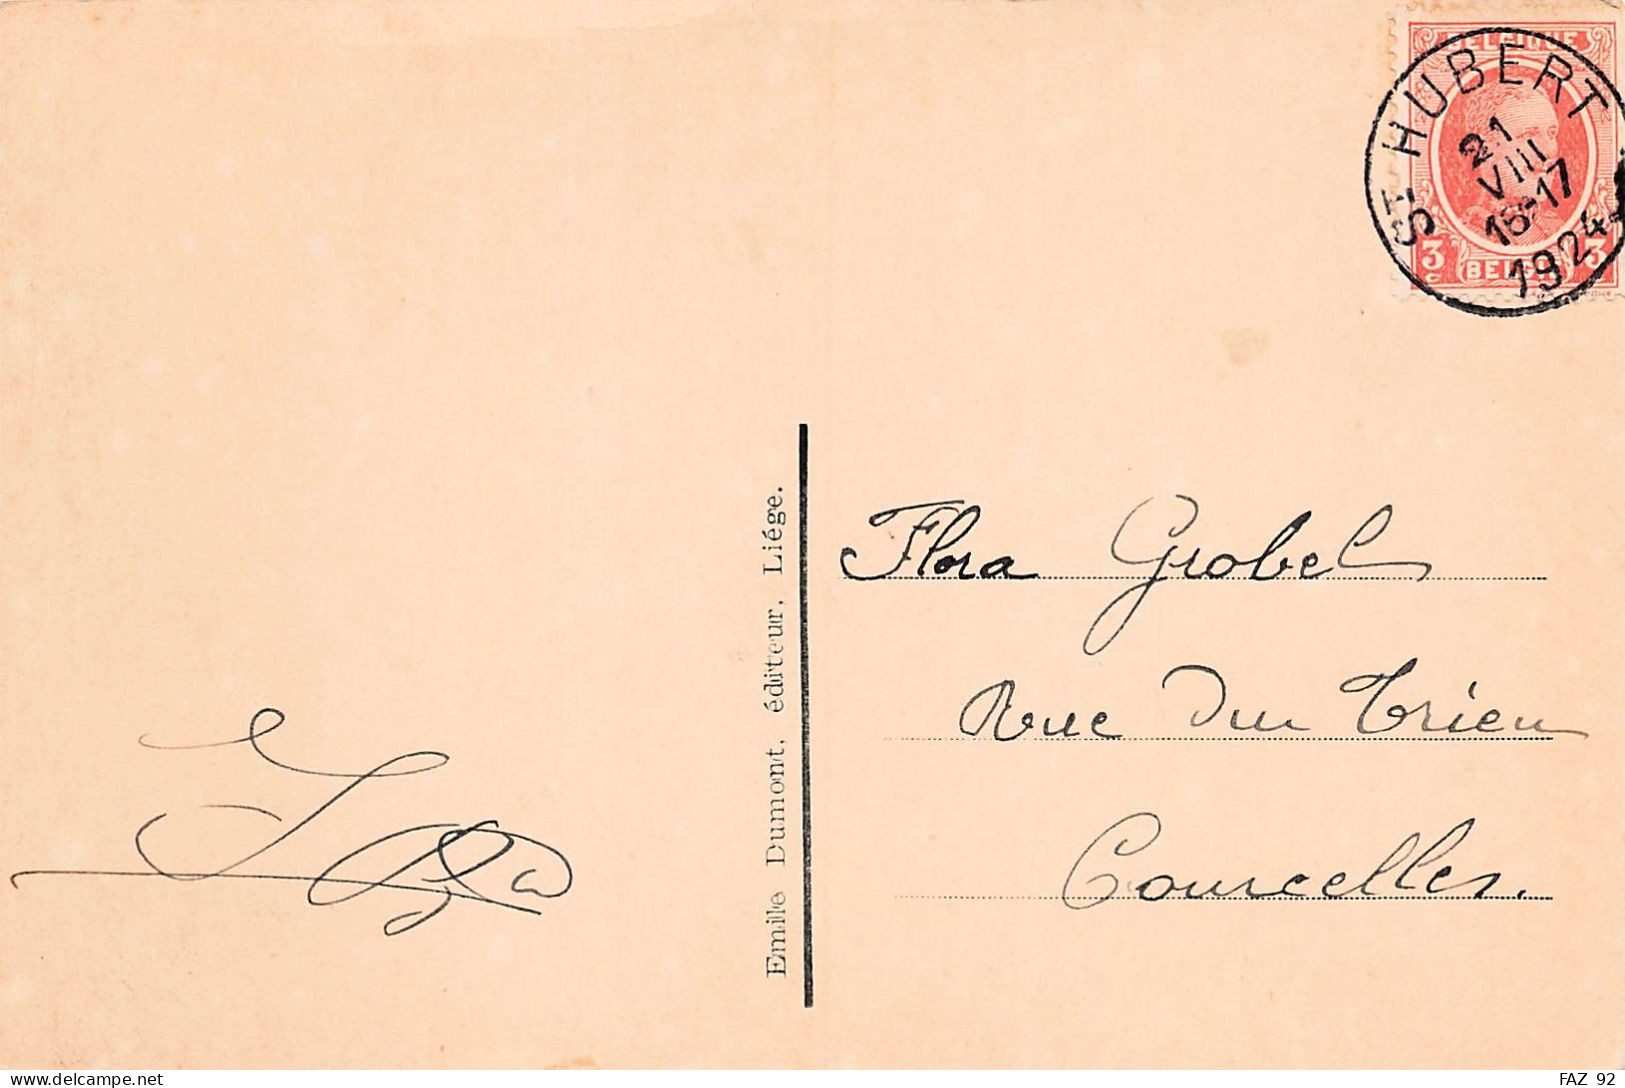 BELGIQUE
ST HUBERT
21
VIII
16-17
1924
3 BELGIE 3
Flora Grobel
Rue Du Trieu
Courcelles.
Emile Dumont, éditeur, Liége.
FAZ 92